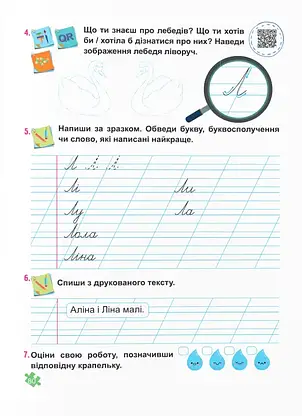 4. Що ти знаєш про лебедів? Що ти хотів
би / хотіла б дізнатися про них? Наведи
зображення лебедя ліворуч.
QR
Л
5. Напиши за зразком. Обведи букву, буквосполучення
чи слово, які написані найкраще.
Л Л Л Л
Лі Ли
Лу Ла
Лола
Ліна
6. Спиши з друкованого тексту.
Аліна і Ліна малі.
7. Оціни свою роботу, позначивши
відповідну крапельку.